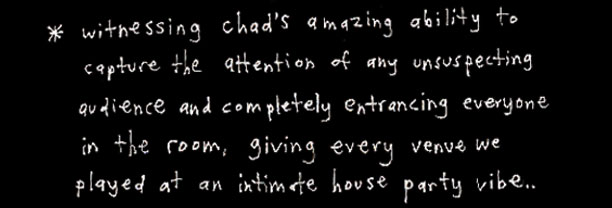 * witnessing chad's amazing ability to
capture the attention of any unsuspecting
audience and completely entrancing everyone
in the room, giving every venue we
played at an intimate house party vibe..